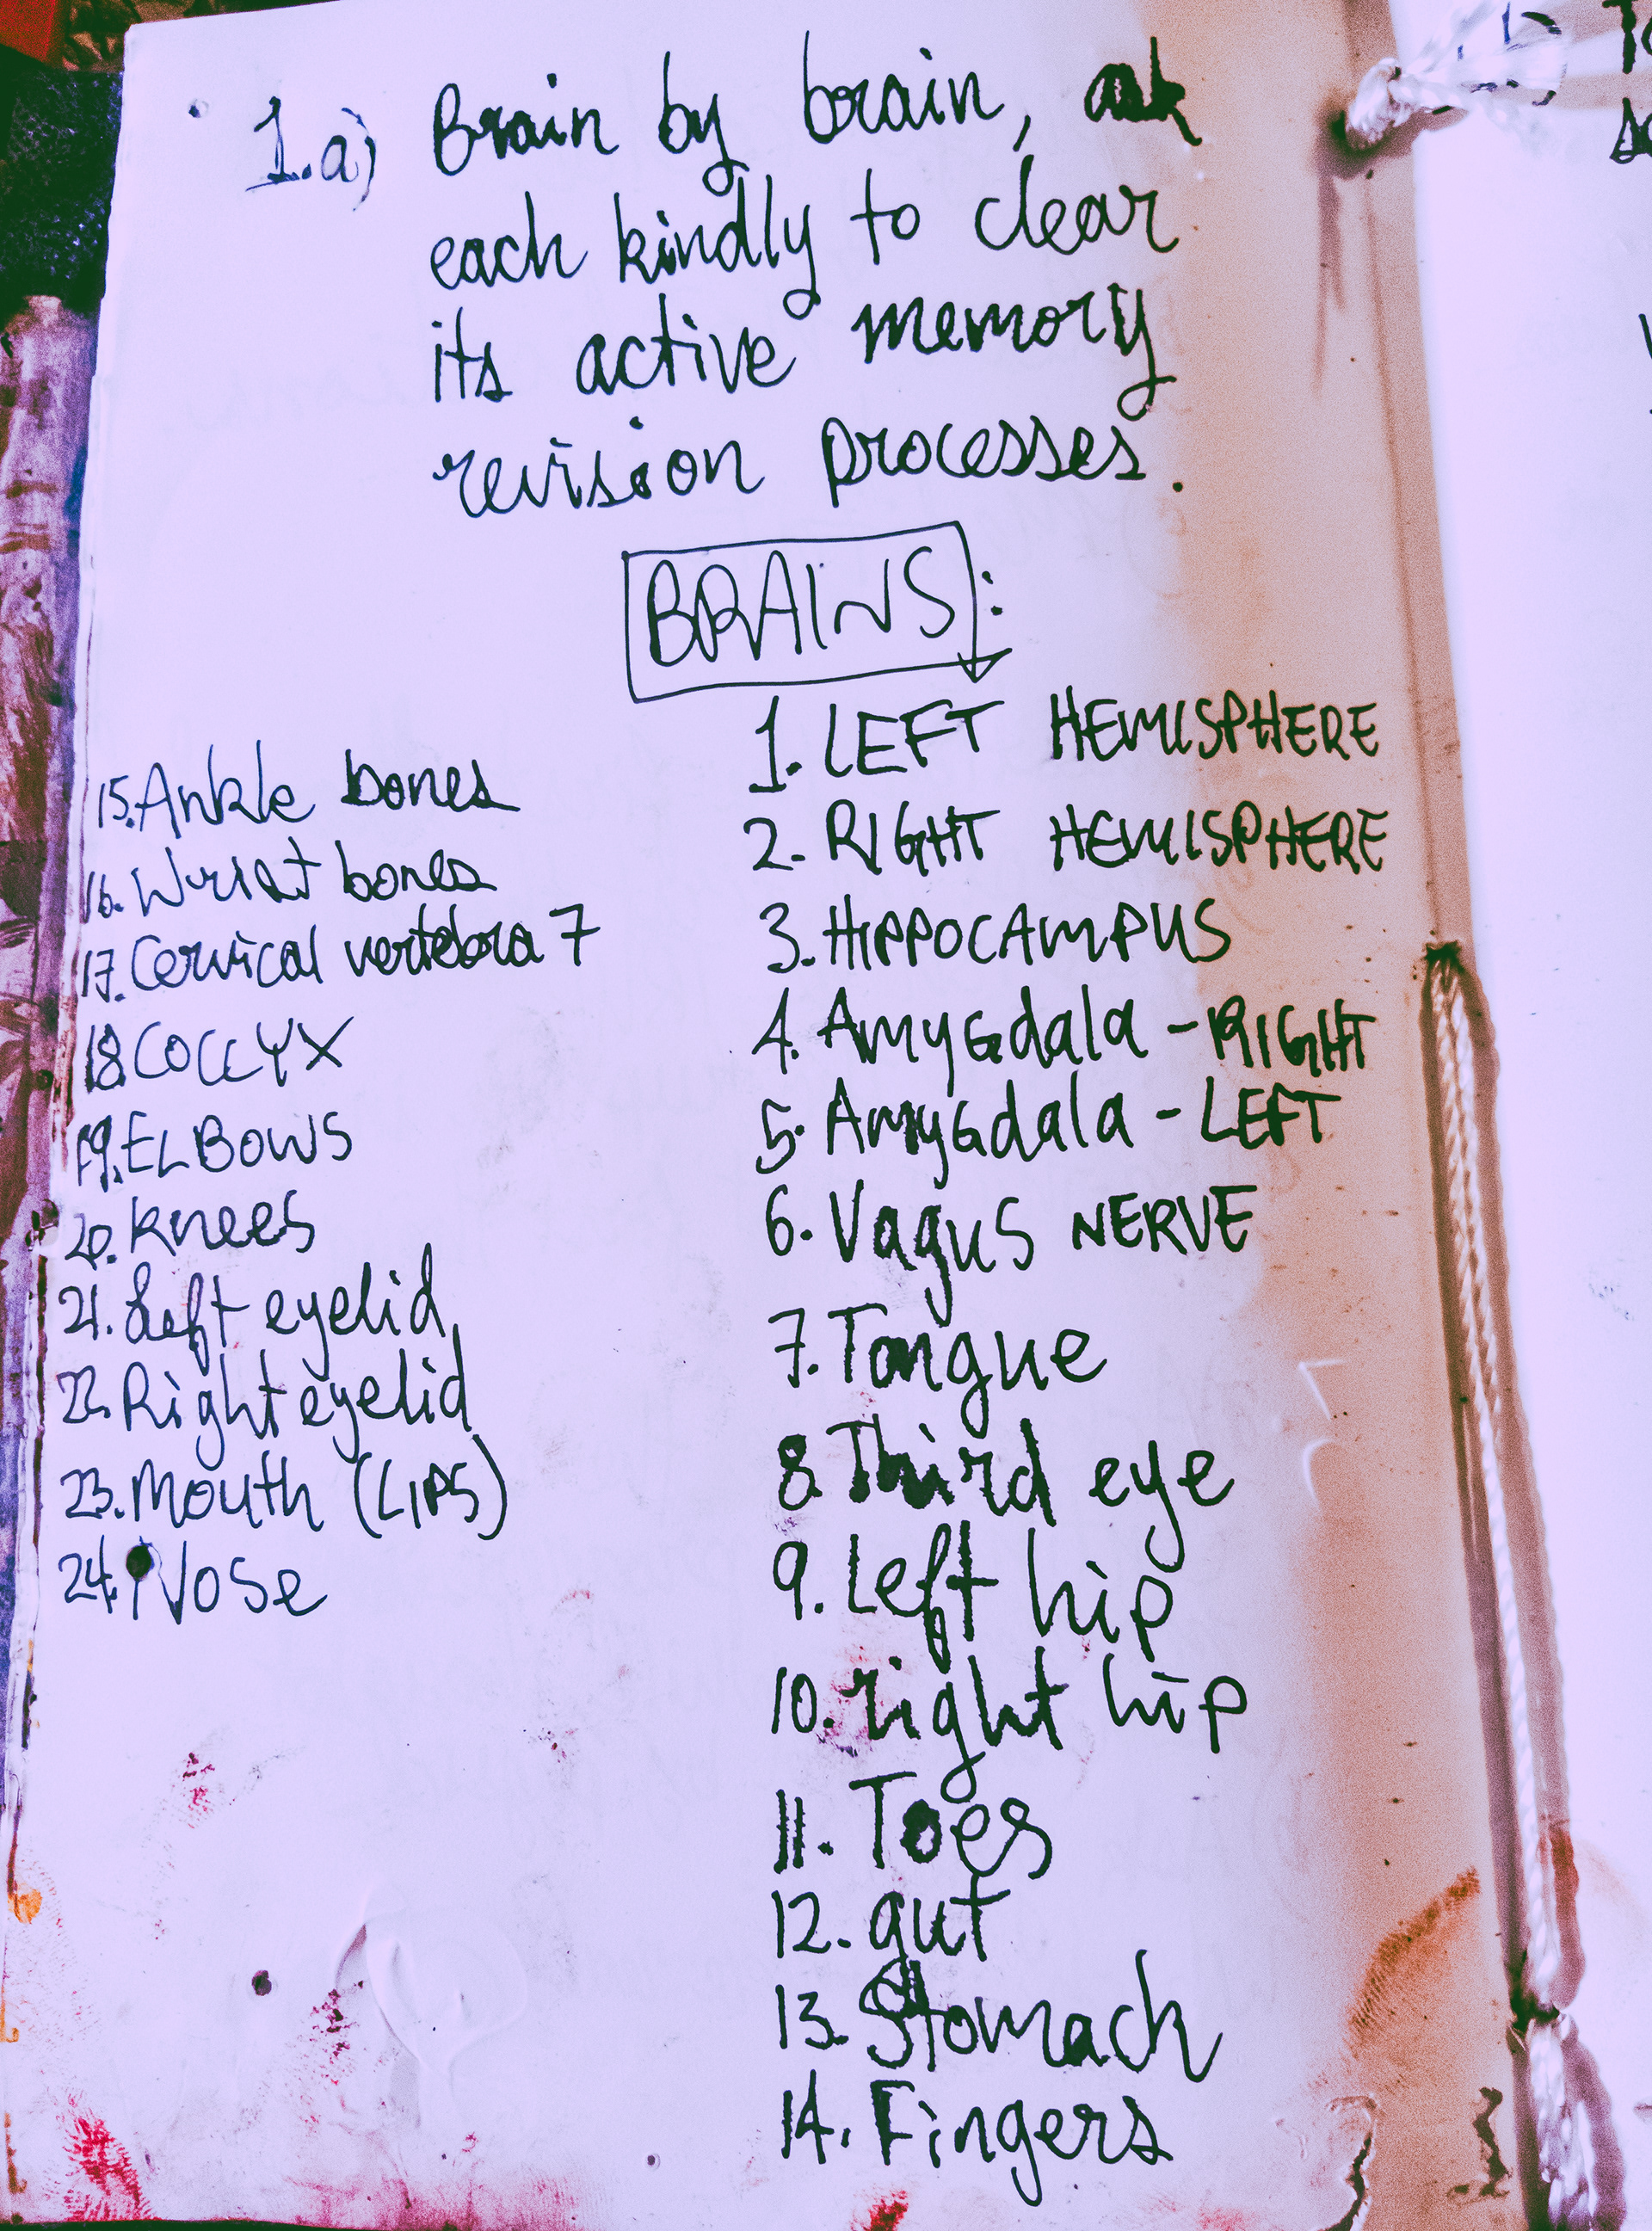 1.a) Brain by brain, ask
each kindly to clear
its active memory
revision processes.
BRAINS:
1. LEFT HEMISPHERE
2. RIGHT HEMISPHERE
3. HIPPOCAMPUS
4. AMYGdala - RIGHT
5. AMYGdala - LEFT
6. Vagus NERVE
7. Tongue
8. Third eye
9. Left hip
10. right hip
11. Toes
12. gut
13. Stomach
14. Fingers
15. Ankle bones
16. Wrist bones
17. Cervical vertebra 7
18. COCCYX
19. ELBOWS
20. knees
21. Left eyelid
22. Right eyelid
23. Mouth (LIPS)
24. Nose